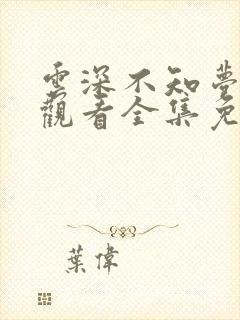 雲深不知夢
觀看全集免
葉偉